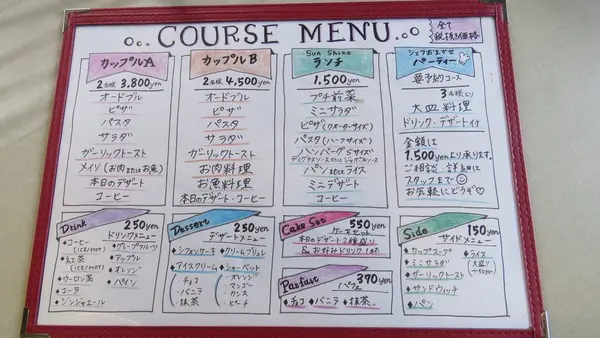 COURSE MENU
全て
税抜き価格
カップルA
2名様 3,800yen
オードブル
ピザ
パスタ
サラダ
ガーリックトースト
メイン(お肉またはお魚)
本日のデザート
コーヒー
カップルB
2名様 4,500yen
オードブル
ピザ
パスタ
サラダ
ガーリックトースト
お肉料理
お魚料理
本日のデザート・コーヒー
Sun Shine
ランチ
1,500yen
プチ前菜
ミニサラダ
ピザ(クオーターサイズ)
パスタ(ハーフサイズ)
ハンバーグSサイズ
デミグラスソースまたはジャポネソース
パンまたはライス
ミニデザート
コーヒー
シェフおまかせ
パーティー
要予約コース
3名様より
大皿料理
ドリンク・デザート付
金額は
1,500yenより承ります。
ご相談・詳細は
スタッフまで
お気軽にどうぞ♡
Drink 250yen
ドリンクメニュー
◆コーヒー
(ICE/HOT)
◆紅茶
(ICE/HOT)
◆ウーロン茶
◆コーラ
◆ジンジャエール
◆グレープフルーツ
◆アップル
◆オレンジ
◆パイン
Dessert 250yen
デザートメニュー
◆シフォンケーキ ◆クリームブリュレ
◆アイスクリーム ◆シャーベット
・チョコ
・バニラ
・抹茶
・オレンジ
・マンゴー
・カシス
・ピーチ
Cake Set 550yen
ケーキセット
本日のデザート2種盛り
&お好みドリンク1杯
Parfait 390yen
パフェ
◆チョコ ◆バニラ ◆抹茶
Side 150yen
サイドメニュー
◆カップスープ
◆ミニサラダ
◆ガーリックトースト
◆サンドウィッチ
◆パン
◆ライス
大盛り
+50yen